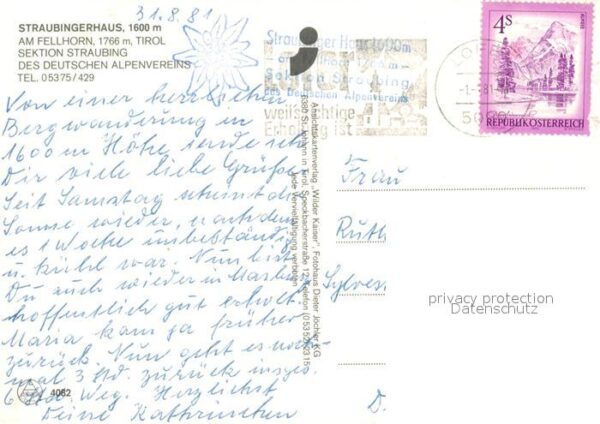 31.8.81
STRAUBINGERHAUS, 1600 m
AM FELLHORN, 1766 m, TIROL
SEKTION STRAUBING
DES DEUTSCHEN ALPENVEREINS
TEL. 05375/429
Von einer herrlichen
Bergwanderung in
1600 m Höhe, sende ich
Dir viele liebe Grüße
Seit Samstag scheint die
Sonne wieder, nachdem
es 1 Woche unbeständig
u. kühl war. Nun bist
Du auch wieder in
hoffentlich gut erholt.
Maria kam ja früher
zurück. Nun geht es noch-
mal 3 Std. zurück insges.
6 Std. Weg. Herzlichst
Deine Kathrinchen
4062
Ansichtskartenverlag „Wilder Kaiser", Fotohaus Dieter Jöchler KG
6380 St. Johann in Tirol, Speckbacherstraße 12, Telefon (05352) 2315
Jede Vervielfältigung verboten
Straubinger Haus 1600m
Sektion Straubing
des Deutschen Alpenvereins
weil richtige
Erholung ist
4S
REPUBLIK ÖSTERREICH
Frau
Ruth
Sylves
D.
privacy protection
Datenschutz